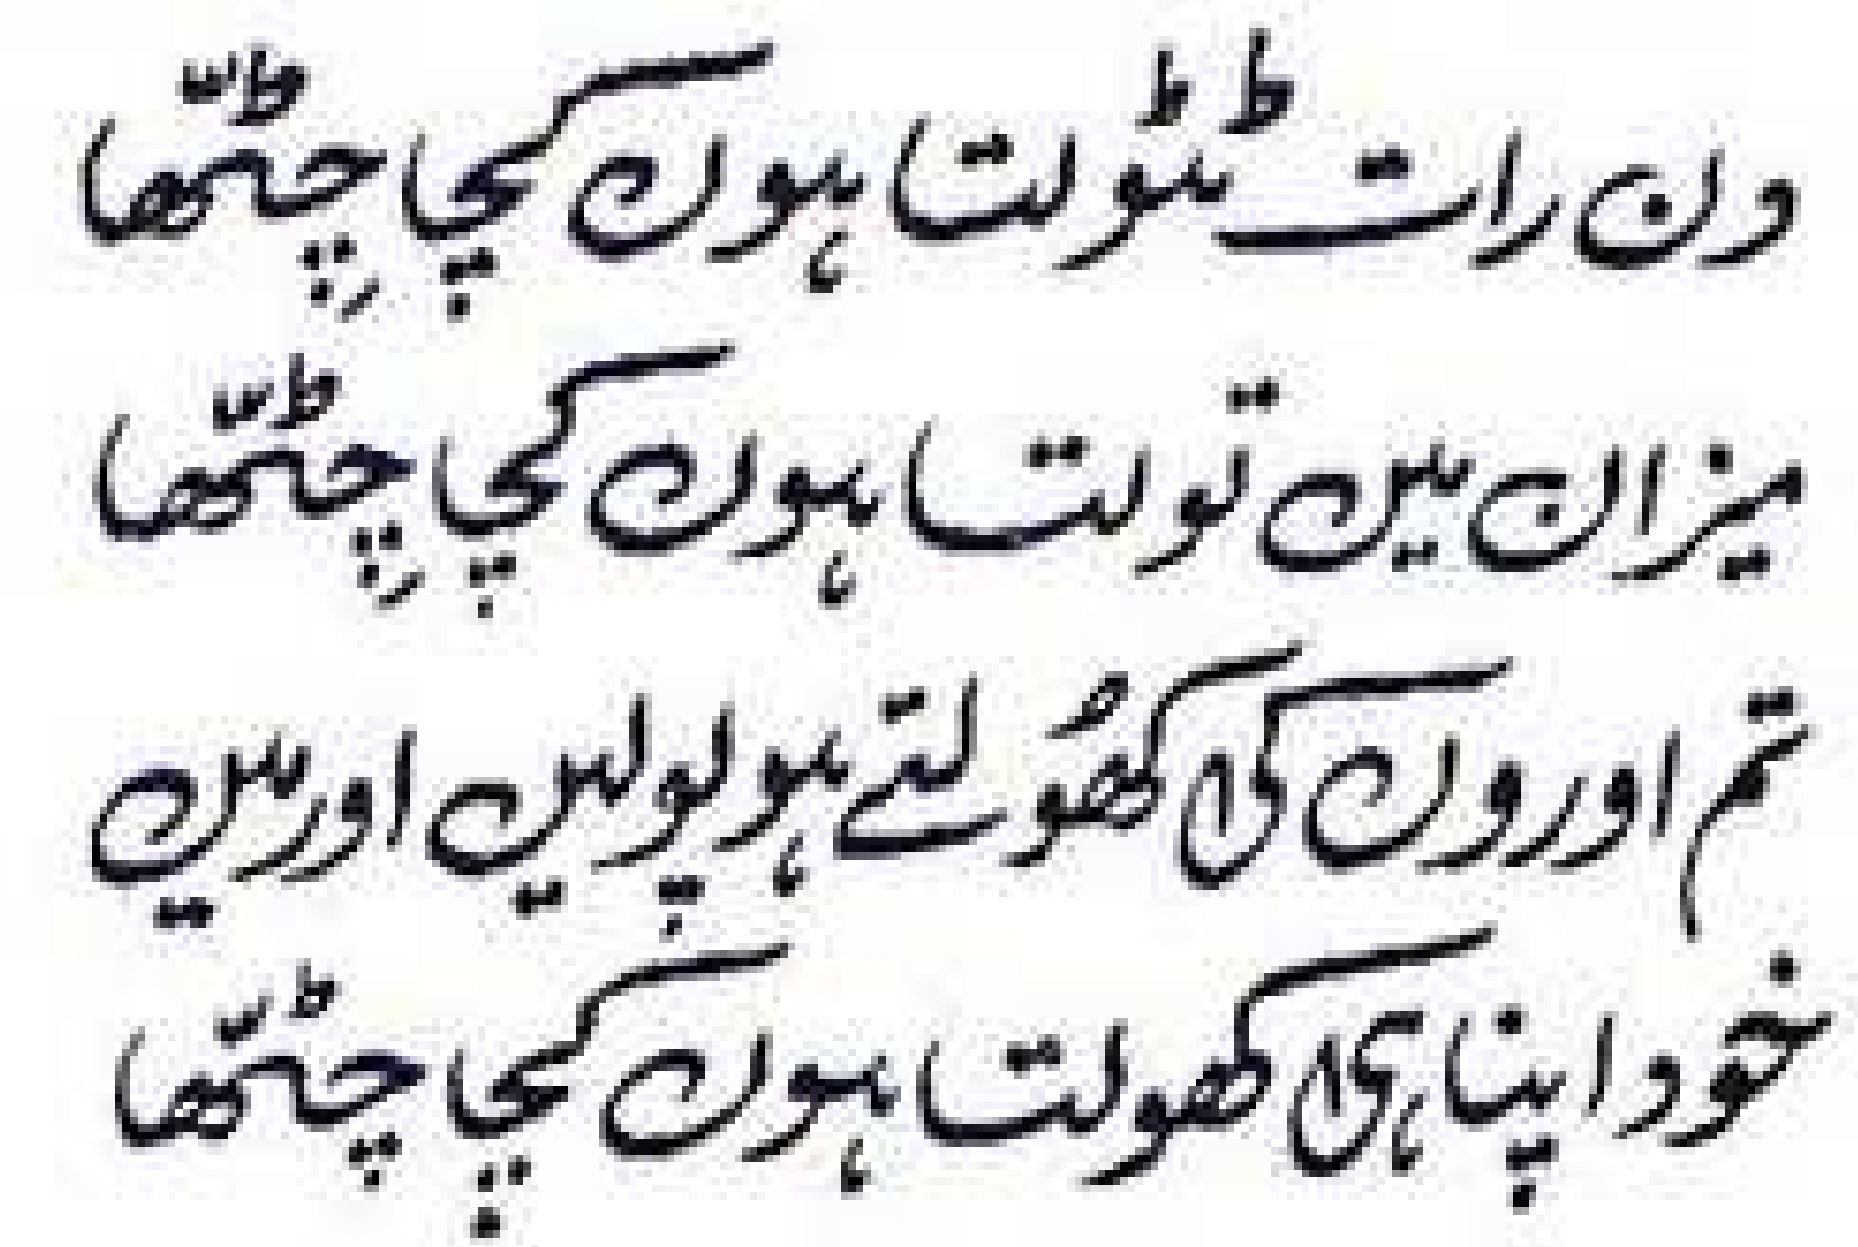 دن رات ٹٹولتا ہوں کچا چِٹّھا
میزان میں تولتا ہوں کچا چِٹّھا
تم اوروں کی کھُولتے ہو پولیں اور میں
خود اپنا ہی کھولتا ہوں کچا چٹّھا